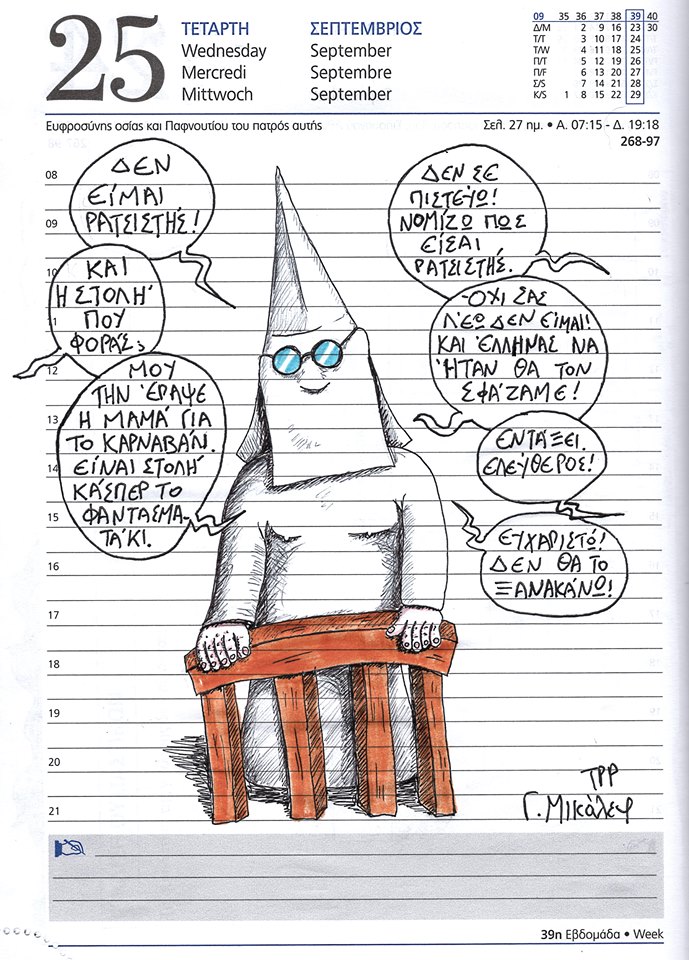 25
ΤΕΤΑΡΤΗ ΣΕΠΤΕΜΒΡΙΟΣ
Wednesday September
Mercredi Septembre
Mittwoch September
09 35 36 37 38 39 40
Δ/M 2 9 16 23 30
T/T 3 10 17 24
T/W 4 11 18 25
Π/T 5 12 19 26
Π/F 6 13 20 27
Σ/S 7 14 21 28
K/S 1 8 15 22 29
Ευφροσύνης οσίας και Παφνουτίου του πατρός αυτής
Σελ. 27 ημ. • Α. 07:15 - Δ. 19:18
268-97
08
09
10
11
12
13
14
15
16
17
18
19
20
21
ΔΕΝ
ΕΙΜΑΙ
ΡΑΤΣΙΣΤΗΣ!
ΚΑΙ
Η ΣΤΟΛΗ
ΠΟΥ
ΦΟΡΑΣ;
ΜΟΥ
ΤΗΝ ΈΡΑΨΕ
Η ΜΑΜΑ ΓΙΑ
ΤΟ ΚΑΡΝΑΒΑΛΙ.
ΕΙΝΑΙ ΣΤΟΛΗ
ΚΑΣΠΕΡ ΤΟ
ΦΑΝΤΑΣΜΑ-
ΤΑΚΙ.
ΔΕΝ ΣΕ
ΠΙΣΤΕΥΩ!
ΝΟΜΙΖΩ ΠΩΣ
ΕΙΣΑΙ
ΡΑΤΣΙΣΤΗΣ.
ΟΧΙ ΣΑΣ
ΛΈΩ ΔΕΝ ΕΙΜΑΙ!
ΚΑΙ ΈΛΛΗΝΑΣ ΝΑ
ΉΤΑΝ ΘΑ ΤΟΝ
ΣΦΑΖΑΜΕ!
ΕΝΤΑΞΕΙ.
ΕΛΕΥΘΕΡΟΣ!
ΕΥΧΑΡΙΣΤΩ!
ΔΕΝ ΘΑ ΤΟ
ΞΑΝΑΚΑΝΩ!
ΤΡΡ
Γ. Μικάλεφ
39η Εβδομάδα • Week